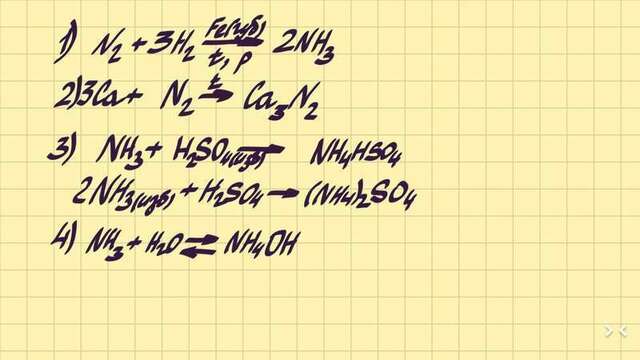 1) N₂ + 3H₂ Fe(губ) t, p 2NH₃
2) 3Ca + N₂ t → Ca₃N₂
3) NH₃ + H₂SO₄(изб) → NH₄HSO₄
2NH₃(изб) + H₂SO₄ → (NH₄)₂SO₄
4) NH₃ + H₂O ⇄ NH₄OH